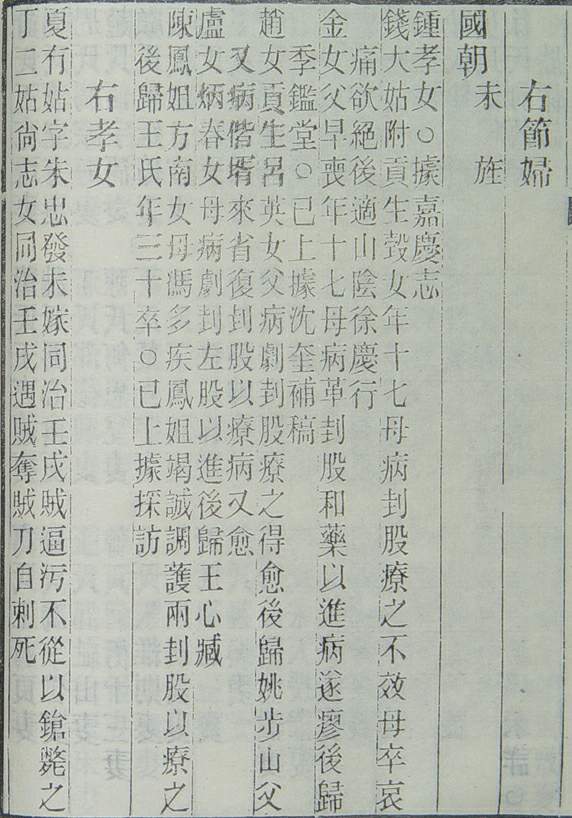 右節婦
國朝未旌
鍾孝女○據嘉慶志
錢大姑附貢生瑴女年十七母病刲股療之不效母卒哀
痛欲絕後適山陰徐慶行
金女父早喪年十七母病革刲股和藥以進病遂瘳後歸
季鑑堂○已上據沈奎補稿
趙女貢生呂英女父病劇刲股療之得愈後歸姚步山父
又病偕壻來省復刲股以療病又愈
盧女炳春女母病劇刲左股以進後歸王心臧
陳鳳姐方南女母馮多疾鳳姐竭誠調護兩刲股以療之
後歸王氏年三十卒○已上據採訪
右孝女
夏冇姑字朱忠發未嫁同治壬戌賊逼汚不從以鎗斃之
丁二姑尙志女同治壬戌遇賊奪賊刀自刺死